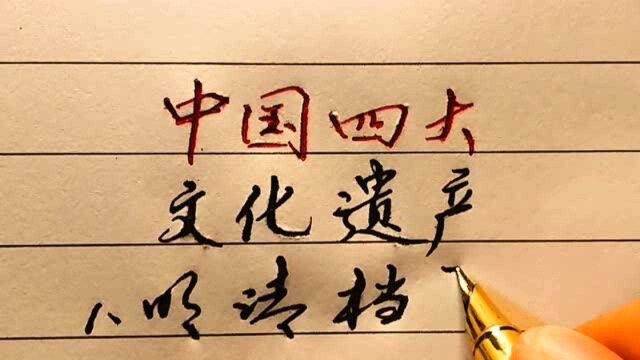 中国四大
文化遗产
1、明清档